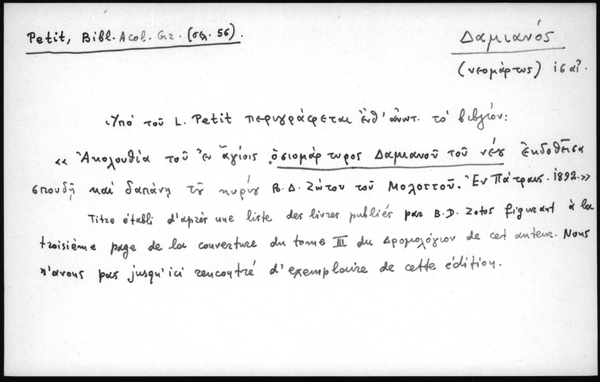 Petit, Bibl. Acol. Gr. (σελ. 56).
Δαμιανός
(νεομάρτυς) ις αἰ.
Ὑπό τοῦ L. Petit περιγράφεται ἐνθ' ἀνωτ. τό βιβλίον:
« Ἀκολουθία τοῦ ἐν ἁγίοις ὁσιομάρτυρος Δαμιανοῦ τοῦ νέου ἐκδοθεῖσα
σπουδῇ καί δαπάνῃ τοῦ κυρίου Β.Δ. Ζώτου τοῦ Μολοττοῦ. Ἐν Πάτραις. 1892.»
Titre établi d'après une liste des livres publiés par B.D. Zotos figurant à la
troisième page de la couverture du tome III du Δρομολόγιον de cet auteur. Nous
n'avons pas jusqu'ici rencontré d'exemplaire de cette édition.